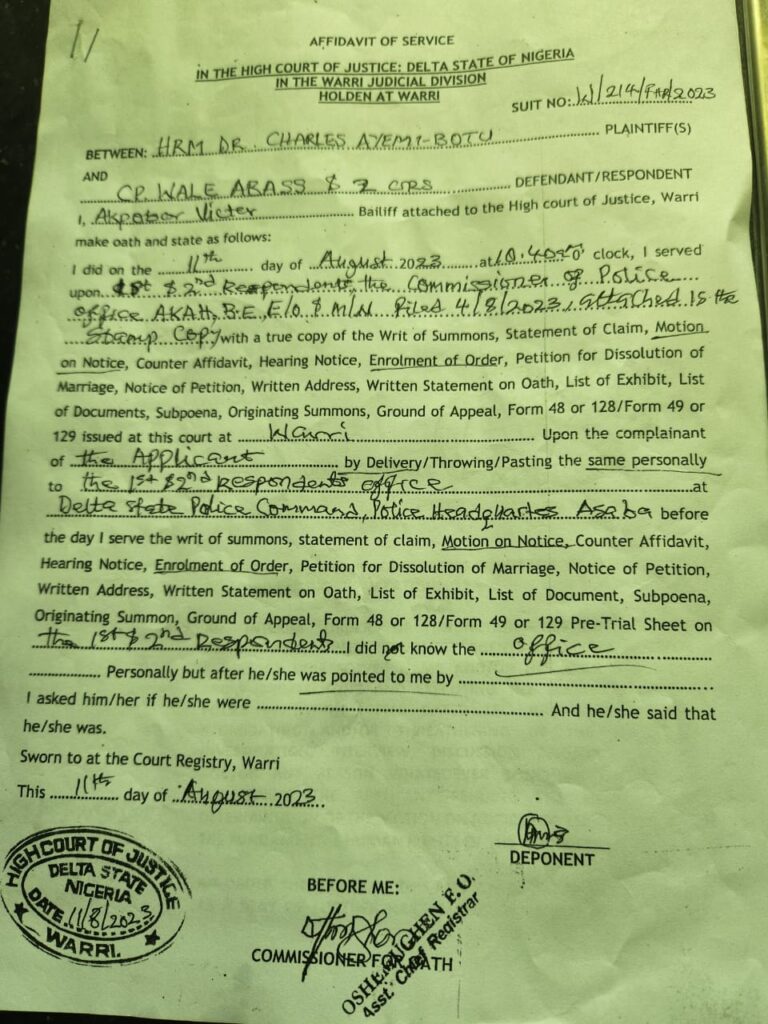 11
AFFIDAVIT OF SERVICE
IN THE HIGH COURT OF JUSTICE: DELTA STATE OF NIGERIA
IN THE WARRI JUDICIAL DIVISION
HOLDEN AT WARRI
SUIT NO: W/214/FHR/2023
BETWEEN: HRM DR CHARLES AYEMI-BOTU PLAINTIFF(S)
AND
CP. WALE ABASS & 2 ORS DEFENDANT/RESPONDENT
I, Akpobor Victor Bailiff attached to the High court of Justice, Warri
make oath and state as follows:
I did on the 11th day of August 2023 at 10:40 O' clock, I served
upon 1st & 2nd Respondents the Commissioner of Police
office AKAH, B.E, E/O & M/N Filed 4/8/2023, attached is the
Stamp Copy with a true copy of the Writ of Summons, Statement of Claim, Motion
on Notice, Counter Affidavit, Hearing Notice, Enrolment of Order, Petition for Dissolution of
Marriage, Notice of Petition, Written Address, Written Statement on Oath, List of Exhibit, List
of Documents, Subpoena, Originating Summons, Ground of Appeal, Form 48 or 128/Form 49 or
129 issued at this court at Warri Upon the complainant
of the Applicant by Delivery/Throwing/Pasting the same personally
to the 1st & 2nd Respondents office at
Delta State Police Command, Police Headquarters Asaba before
the day I serve the writ of summons, statement of claim, Motion on Notice, Counter Affidavit,
Hearing Notice, Enrolment of Order, Petition for Dissolution of Marriage, Notice of Petition,
Written Address, Written Statement on Oath, List of Exhibit, List of Document, Subpoena,
Originating Summon, Ground of Appeal, Form 48 or 128/Form 49 or 129 Pre-Trial Sheet on
the 1st & 2nd Respondents I did not know the office
Personally but after he/she was pointed to me by
I asked him/her if he/she were And he/she said that
he/she was.
Sworn to at the Court Registry, Warri
This 11th day of August 2023.
DEPONENT
HIGH COURT OF JUSTICE
DELTA STATE
NIGERIA
DATE 11/8/2023
WARRI.
BEFORE ME:
COMMISSIONER FOR OATH
OSHEMUGHEN F.O.
Asst. Chief Registrar